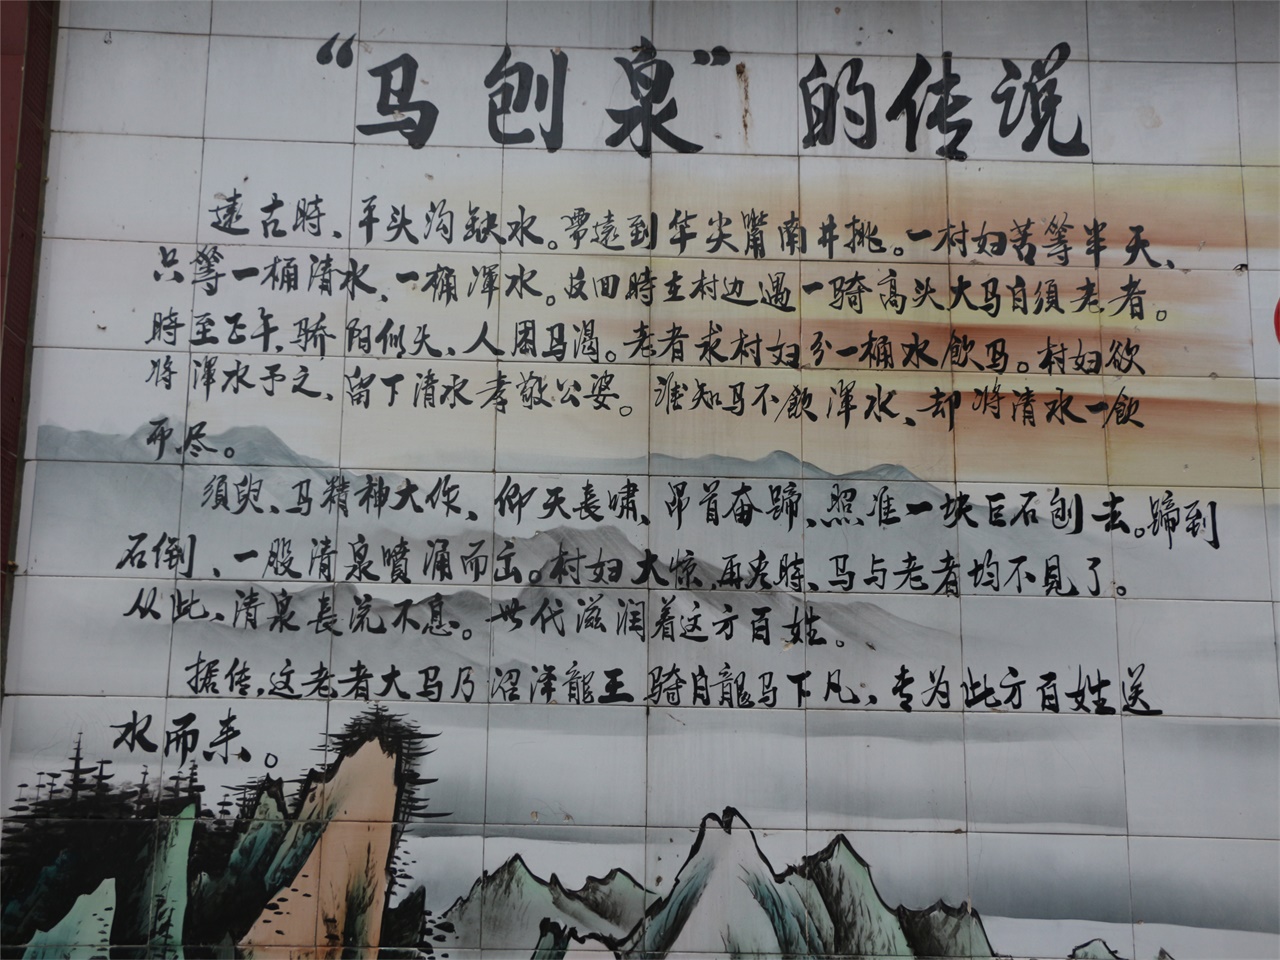 “马刨泉”的传说
遠古時、平头沟缺水。需遠到华尖嘴南井挑。一村妇苦等半天、
只等一桶清水、一桶渾水。返回時在村边遇一骑高头大马白须老者。
時至正午、骄阳似火、人困马渴。老者求村妇分一桶水飲马。村妇欲
将渾水予之、留下清水孝敬公婆。谁知马不飲渾水、却将清水一飲
而尽。
須臾、马精神大作、仰天長嘯、昂首奋蹄、照准一块巨石刨去。蹄到
石倒、一股清泉噴涌而出。村妇大惊，再看時、马与老者均不見了。
从此、清泉長流不息。世代滋润着这方百姓。
据传，这老者大马乃沼泽龍王骑白龍马下凡、专为此方百姓送
水而来。